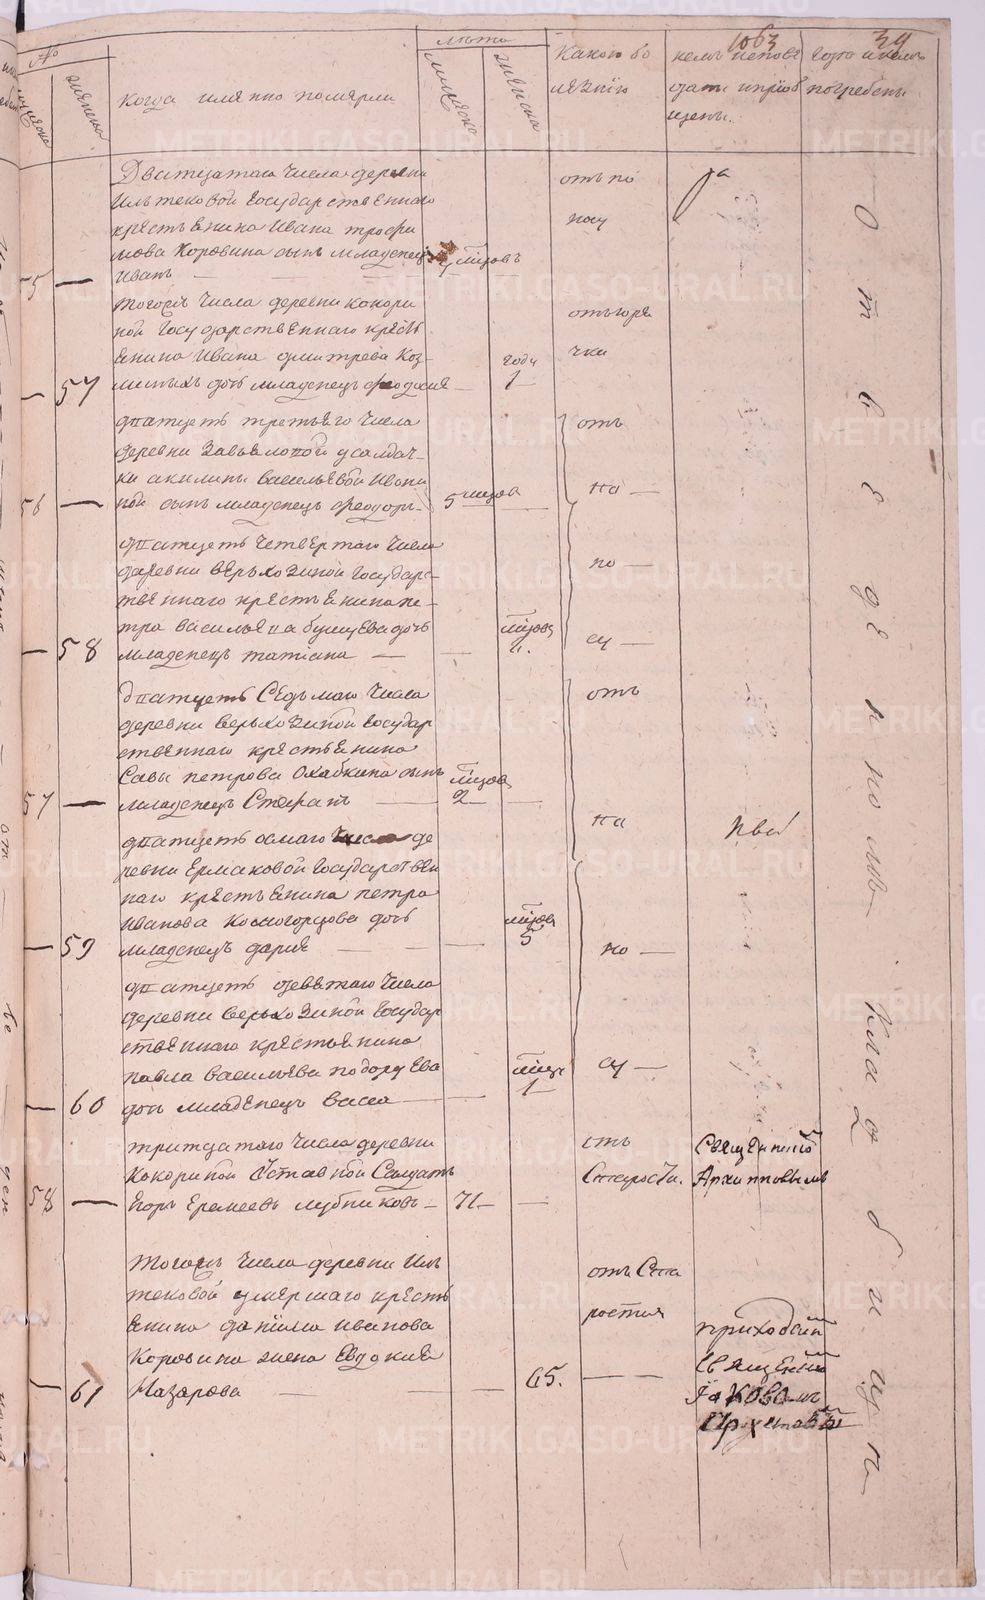 1063
39
№
лѣта
мужеска
женска
женска
когда имянно померли
Какою бо
лезнїю
кемъ испове
даны и приоб
щены
Где и кемъ
погребены
Дватцатаго числа деревни
Ильтековой Государственнаго
крестьянина Ивана трофи
мова Коровина сынъ младенецъ
Иванъ
55
мцовъ
отъ по
носу
тогожъ числа деревни кокори
ной Государственнаго кресть
янина Ивана дмитрева Коз-
миныхъ дочь младенецъ феодосия
57
году
1
отъ горя
чки
дватцеть третьяго числа
деревни Завьяловой у салдат-
ки акилины васильевой Ивани
ной сынъ младенецъ феодоръ
56
5 мцовъ
отъ
дватцеть четвертаго числа
деревни верьхозиной Государс-
твеннаго крестьянина пе-
тра васильева бунцева дочь
младенецъ татиана
58
мцовъ
по
су
дватцеть Седьмаго числа
деревни верьхозиной Государ
ственнаго крестьянина
Савы петрова Охабкина сынъ
младенецъ Стефанъ
57
мцов
2
отъ
дватцеть осмаго числа де
ревни Ермаковой Государствен
наго крестьянина петра
Иванова Косногорцова дочь
младенецъ дария
59
мцовъ
5
на
но
дватцеть девятаго числа
деревни верьхозиной Государ
ственнаго крестьянина
павла васильева подоруева
дочь младенецъ васса
60
мцъ
1
су
тритцатаго числа деревни
Кокориной Отставной Салдатъ
Егоръ Еремеевъ лубниковъ
58
71
отъ
Старости.
Священникомъ
Архиповымъ
тогожъ числа деревни Иль
тековой умершаго кресть
янина данїила иванова
Коровина жена Евдокия
Назарова
61
65.
отъ Ста
рости
приходскимъ
Священникомъ
Їаковомъ
Архиповымъ
Отведенномъ Кладбищи